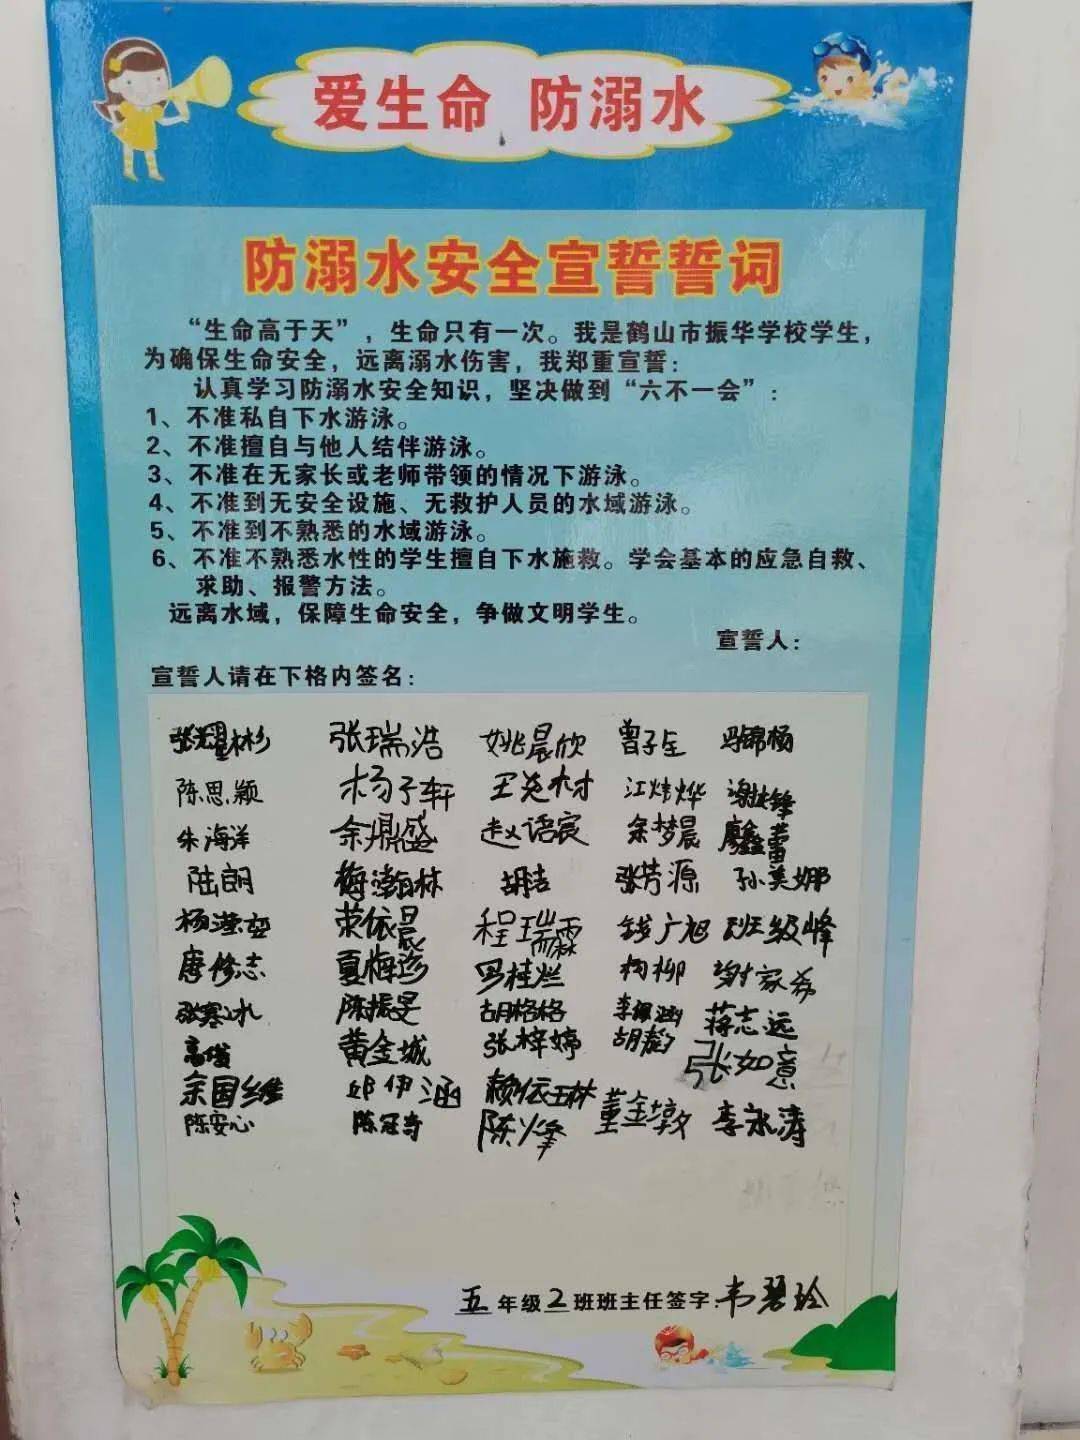 爱生命 防溺水
防溺水安全宣誓誓词
“生命高于天”，生命只有一次。我是鹤山市振华学校学生，
为确保生命安全，远离溺水伤害，我郑重宣誓：
认真学习防溺水安全知识，坚决做到“六不一会”：
1、不准私自下水游泳。
2、不准擅自与他人结伴游泳。
3、不准在无家长或老师带领的情况下游泳。
4、不准到无安全设施、无救护人员的水域游泳。
5、不准到不熟悉的水域游泳。
6、不准不熟悉水性的学生擅自下水施救。学会基本的应急自救、
求助、报警方法。
远离水域，保障生命安全，争做文明学生。
宣誓人：
宣誓人请在下格内签名：
张耀彬 张瑞浩 姚晨欣 曾子 马锦杨
陈思颖 杨子轩 江炜烨 谢
朱海洋 余鼎盛 赵语宸 余梦晨 廖鑫蕾
陆朗 梅瀚林 胡洁 张芳源 孙美娜
杨滢 荣依晨 程瑞霖 钱广旭 班级峰
唐修志 夏梅珍 罗桂烂 柯柳 谢家希
张寒冰 陈振旻 胡格格 李 涵 蒋志远
高俊 黄金城 张梓婷 胡韵 张如意
余国维 邱伊涵 赖依琳 董金墩 李永涛
陈安心 陈冠奇 陈烽
五年级2班班主任签字：韦碧玲